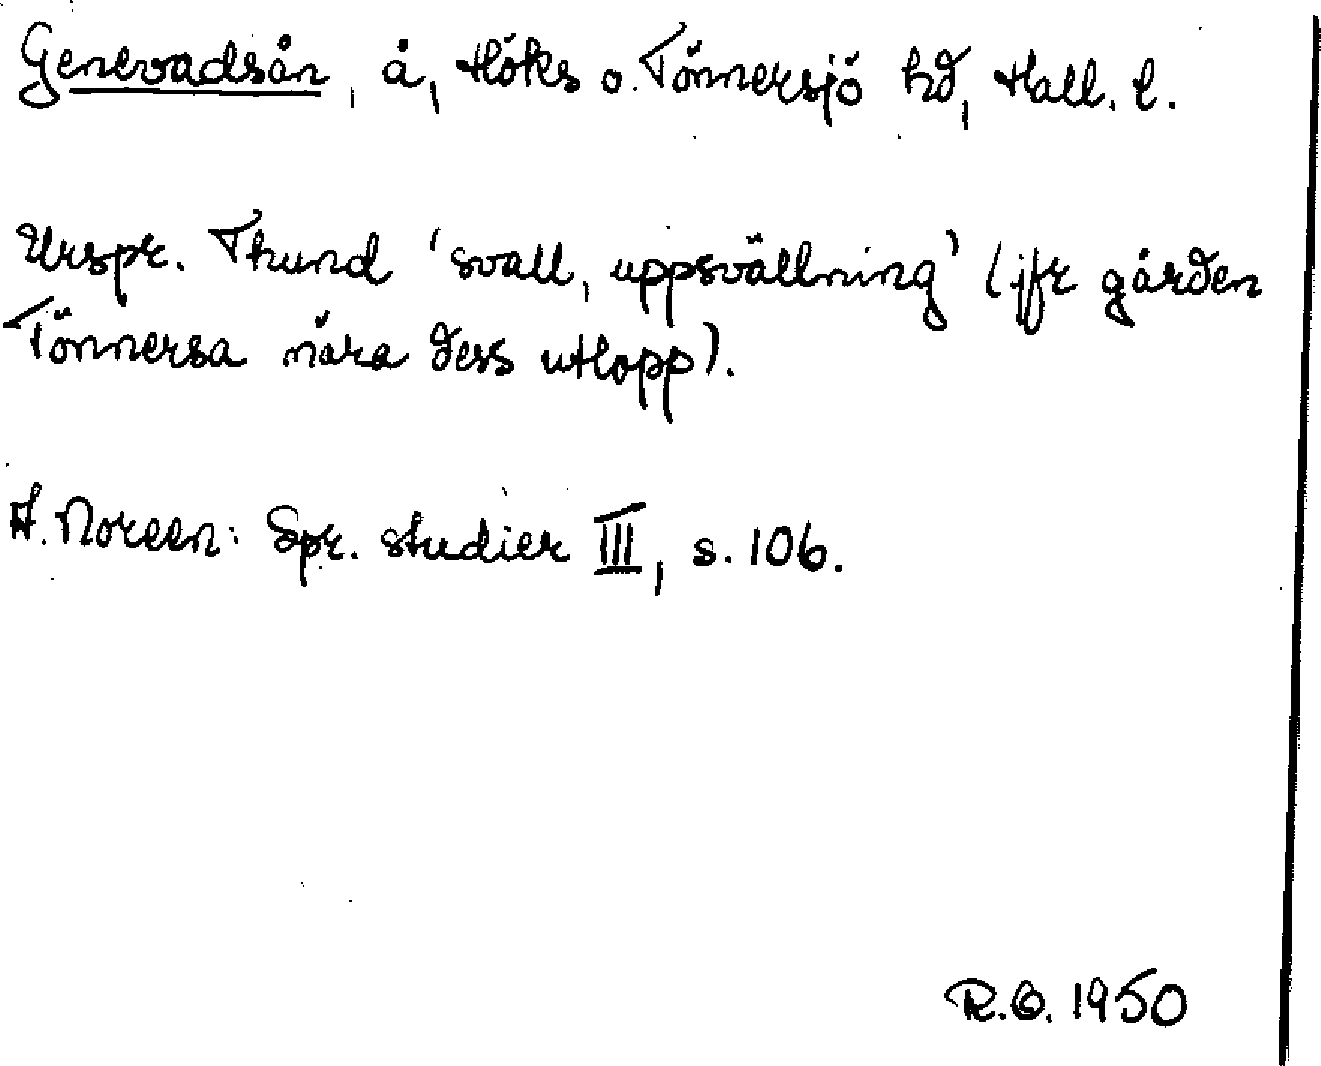 Genevadsån, å, Höks o. Tönnersjö hd, Hall. l.
Urspr. Thund 'svall, uppsvällning' (jfr gården
Tönnersa nära dess utlopp).
A. Noreen: Spr. studier III, s. 106.
R.O. 1950